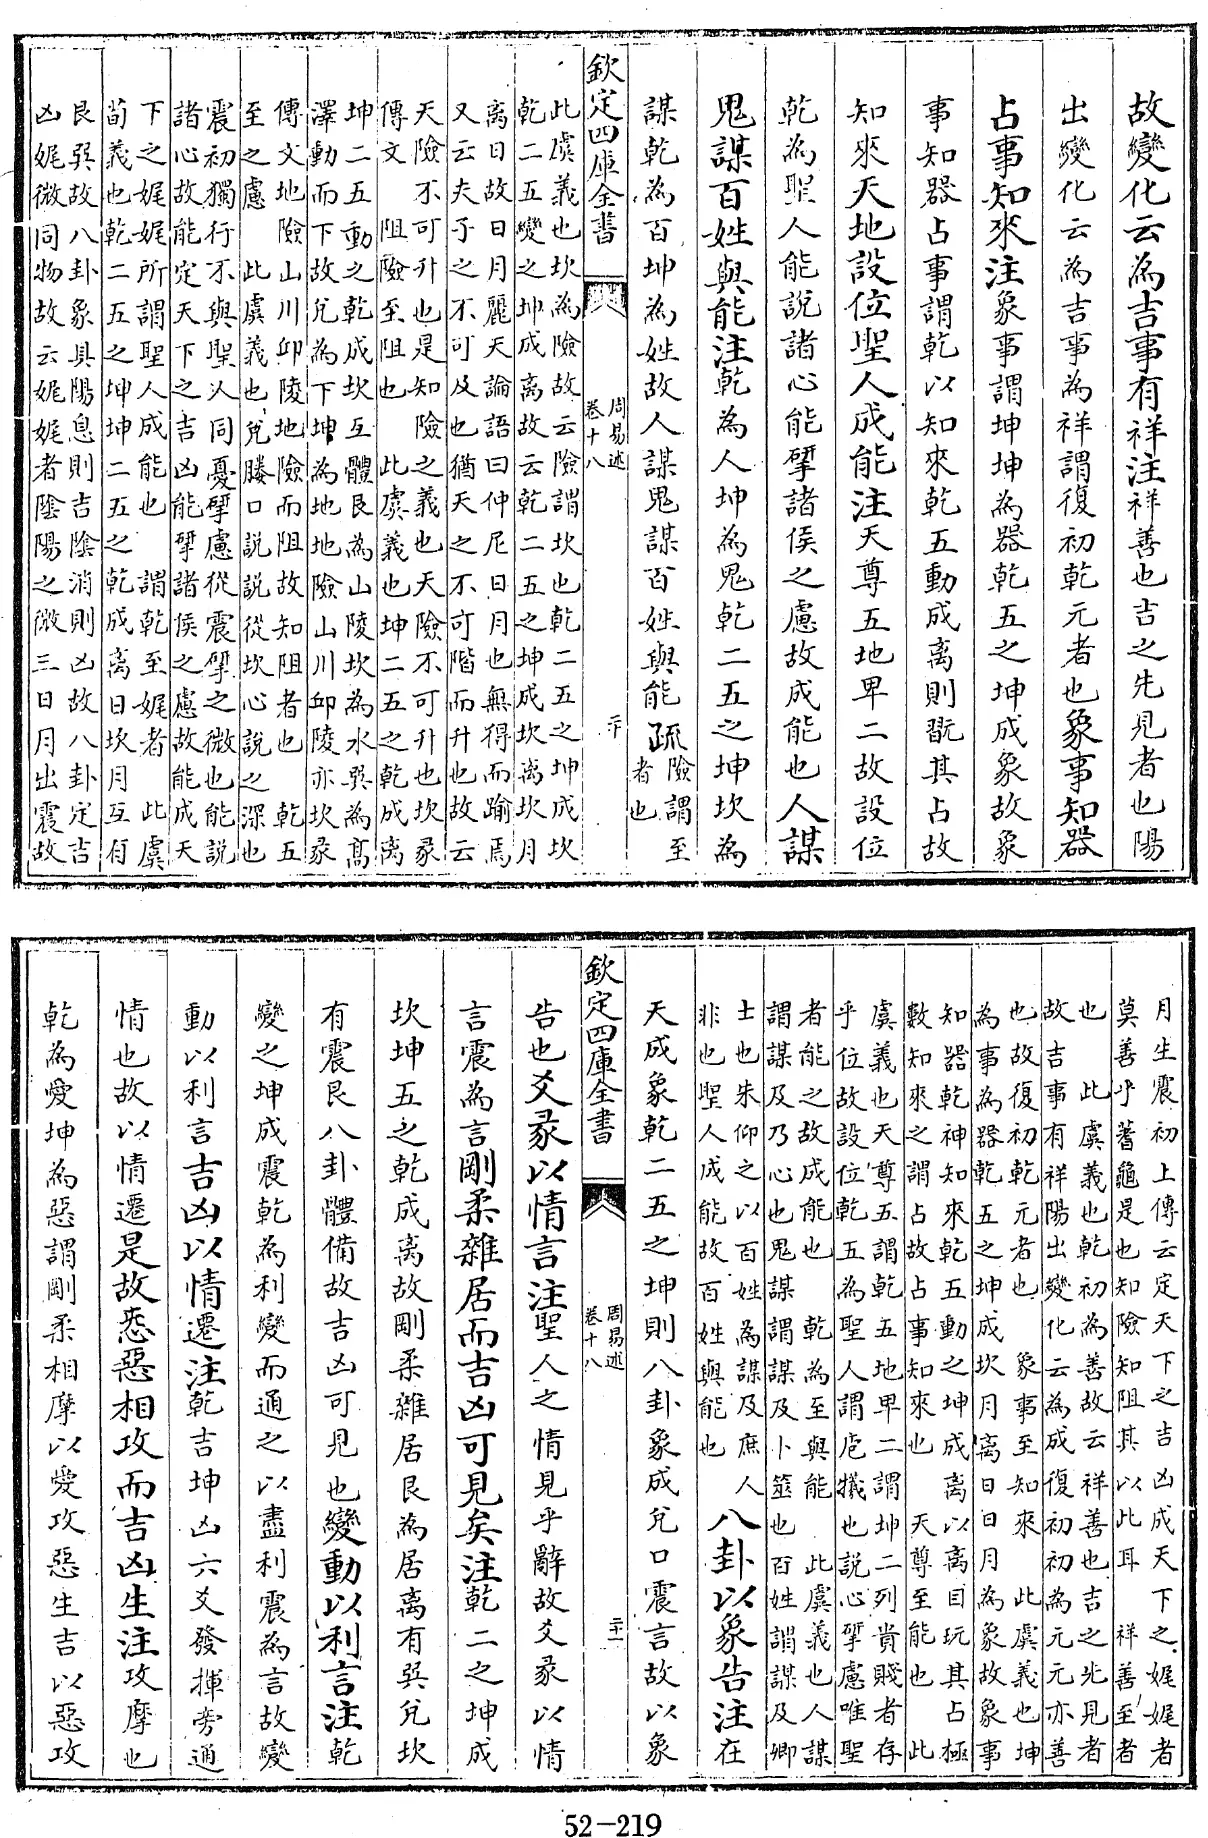 故變化云為吉事有祥注祥善也吉之先見者也陽
出變化云為吉事為祥謂復初乾元者也象事知器
占事知來注象事謂坤坤為器乾五之坤成象故象
事知器占事謂乾以知來乾五動成离則翫其占故
知來天地設位聖人成能注天尊五地卑二故設位
乾為聖人能說諸心能揅諸侯之慮故成能也人謀
鬼謀百姓與能注乾為人坤為鬼乾二五之坤坎為
謀乾為百坤為姓故人謀鬼謀百姓與能疏險謂至
者也
欽定四庫全書
周易述
卷十八
二十
此虞義也坎為險故云險謂坎也乾二五之坤成坎
乾二五變之坤成离故云乾二五之坤成坎离坎月
离日故曰日月麗天論語曰仲尼日月也無得而踰焉
又云夫子之不可及也猶天之不可階而升也故云
天險不可升也是知險之義也天險不可升也坎彖
傳文 阻險至阻也 此虞義也坤二五之乾成离
坤二五動之乾成坎互體艮為山陵坎為水巽為高
澤動而下故兌為下坤為地地險山川邱陵亦坎彖
傳文地險山川邱陵地險而阻故知阻者也 乾五
至之慮 此虞義也兌騰口說說從坎心說之深也
震初獨行不與聖人同憂揅慮從震揅之微也能說
諸心故能定天下之吉凶能揅諸侯之慮故能成天
下之娓娓所謂聖人成能也 謂乾至娓者 此虞
荀義也乾二五之坤坤二五之乾成离日坎月互有
艮巽故八卦象具陽息則吉陰消則凶故八卦定吉
凶娓微同物故云娓娓者陰陽之微三日月出震故
月生震初上傳云定天下之吉凶成天下之娓娓者
莫善乎蓍龜是也知險知阻其以此耳 祥善至者
也 此虞義也乾初為善故云祥善也吉之先見者
故吉事有祥陽出變化云為成復初初為元元亦善
也故復初乾元者也 象事至知來 此虞義也坤
為事為器乾五之坤成坎月离日日月為象故象事
知器乾神知來乾五動之坤成离以离目玩其占極
數知來之謂占故占事知來也 天尊至能也 此
虞義也天尊五謂乾五地卑二謂坤二列貴賤者存
乎位故設位乾五為聖人謂庖犧也說心揅慮唯聖
者能之故成能也 乾為至與能 此虞義也人謀
謂謀及乃心也鬼謀謂謀及卜筮也百姓謂謀及卿
士也朱仰之以百姓為謀及庶人
非也聖人成能故百姓與能也
八卦以象告注在
天成象乾二五之坤則八卦象成兌口震言故以象
欽定四庫全書
周易述
卷十八
二十一
告也爻彖以情言注聖人之情見乎辭故爻彖以情
言震為言剛柔雜居而吉凶可見矣注乾二之坤成
坎坤五之乾成离故剛柔雜居艮為居离有巽兌坎
有震艮八卦體備故吉凶可見也變動以利言注乾
變之坤成震乾為利變而通之以盡利震為言故變
動以利言吉凶以情遷注乾吉坤凶六爻發揮旁通
情也故以情遷是故悉惡相攻而吉凶生注攻摩也
乾為愛坤為惡謂剛柔相摩以愛攻惡生吉以惡攻
52-219